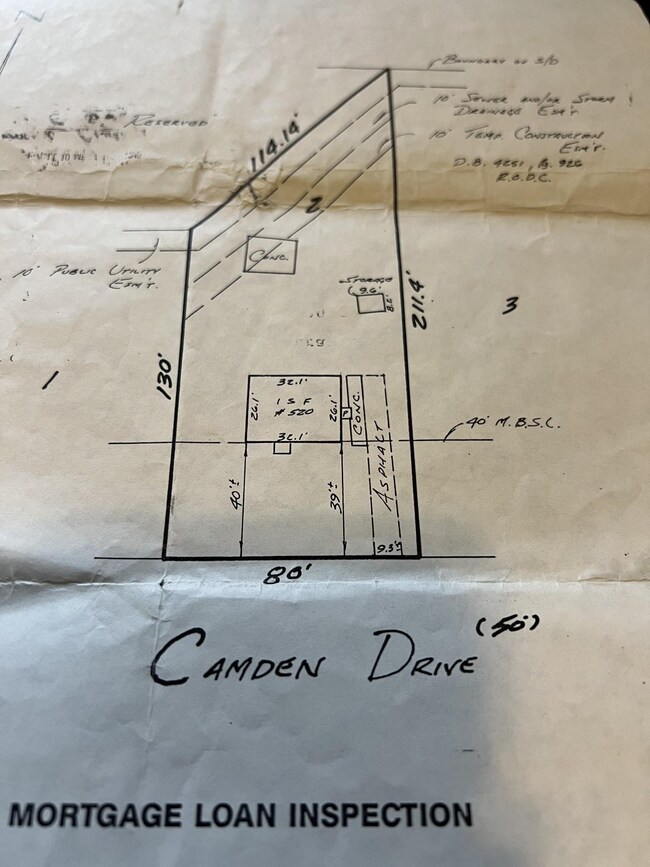 N
BOUNDARY OF S/D
10' SEWER AND/OR STORM
DRAINAGE ESM'T.
10' TEMP CONSTRUCTION
ESM'T.
D.B. 4251, PG. 926
R.O.D.C.
RESERVED
114.14'
2
CONC.
10' PUBLIC UTILITY
ESM'T.
STORAGE
9.6'
8.6'
211.4'
3
1
130'
32.1'
26.1'
1 S F
#520
26.1'
32.1'
CONC.
ASPHALT
40' M.B.S.L.
40'±
39'±
9.3'
80'
CAMDEN DRIVE (50')
MORTGAGE LOAN INSPECTION